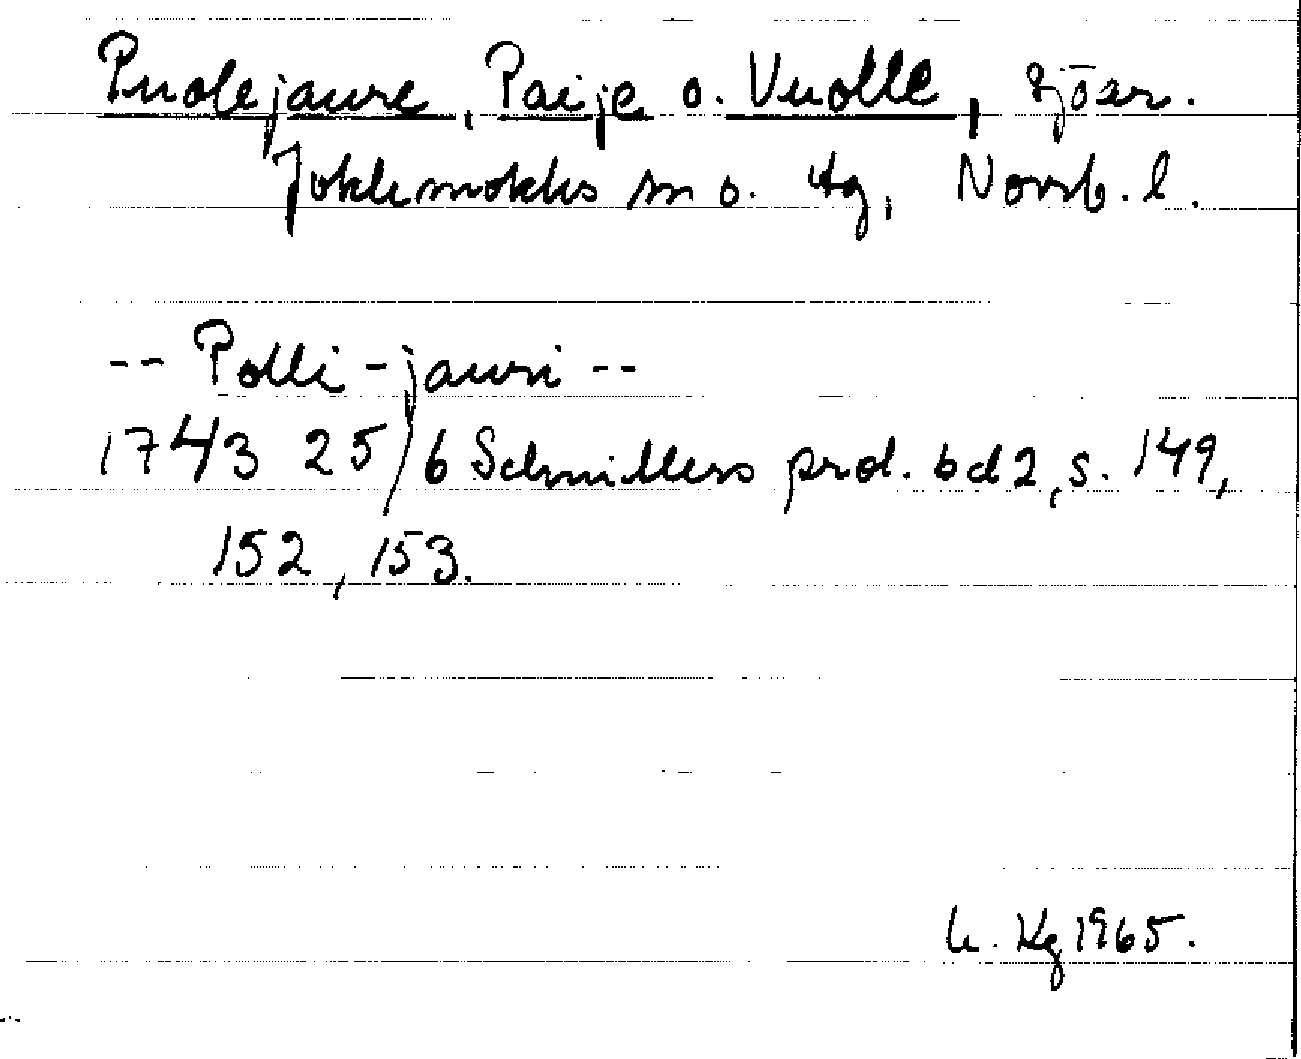 Puolejaure, Paije o. Vuolle, sjöar.
Jokkmokks sn o. tg, Norrb. l.
-- Polli-jauri --
1743 25/6 Schnitlers prot. bd 2, s. 149,
152, 153.
h. Kg 1965.